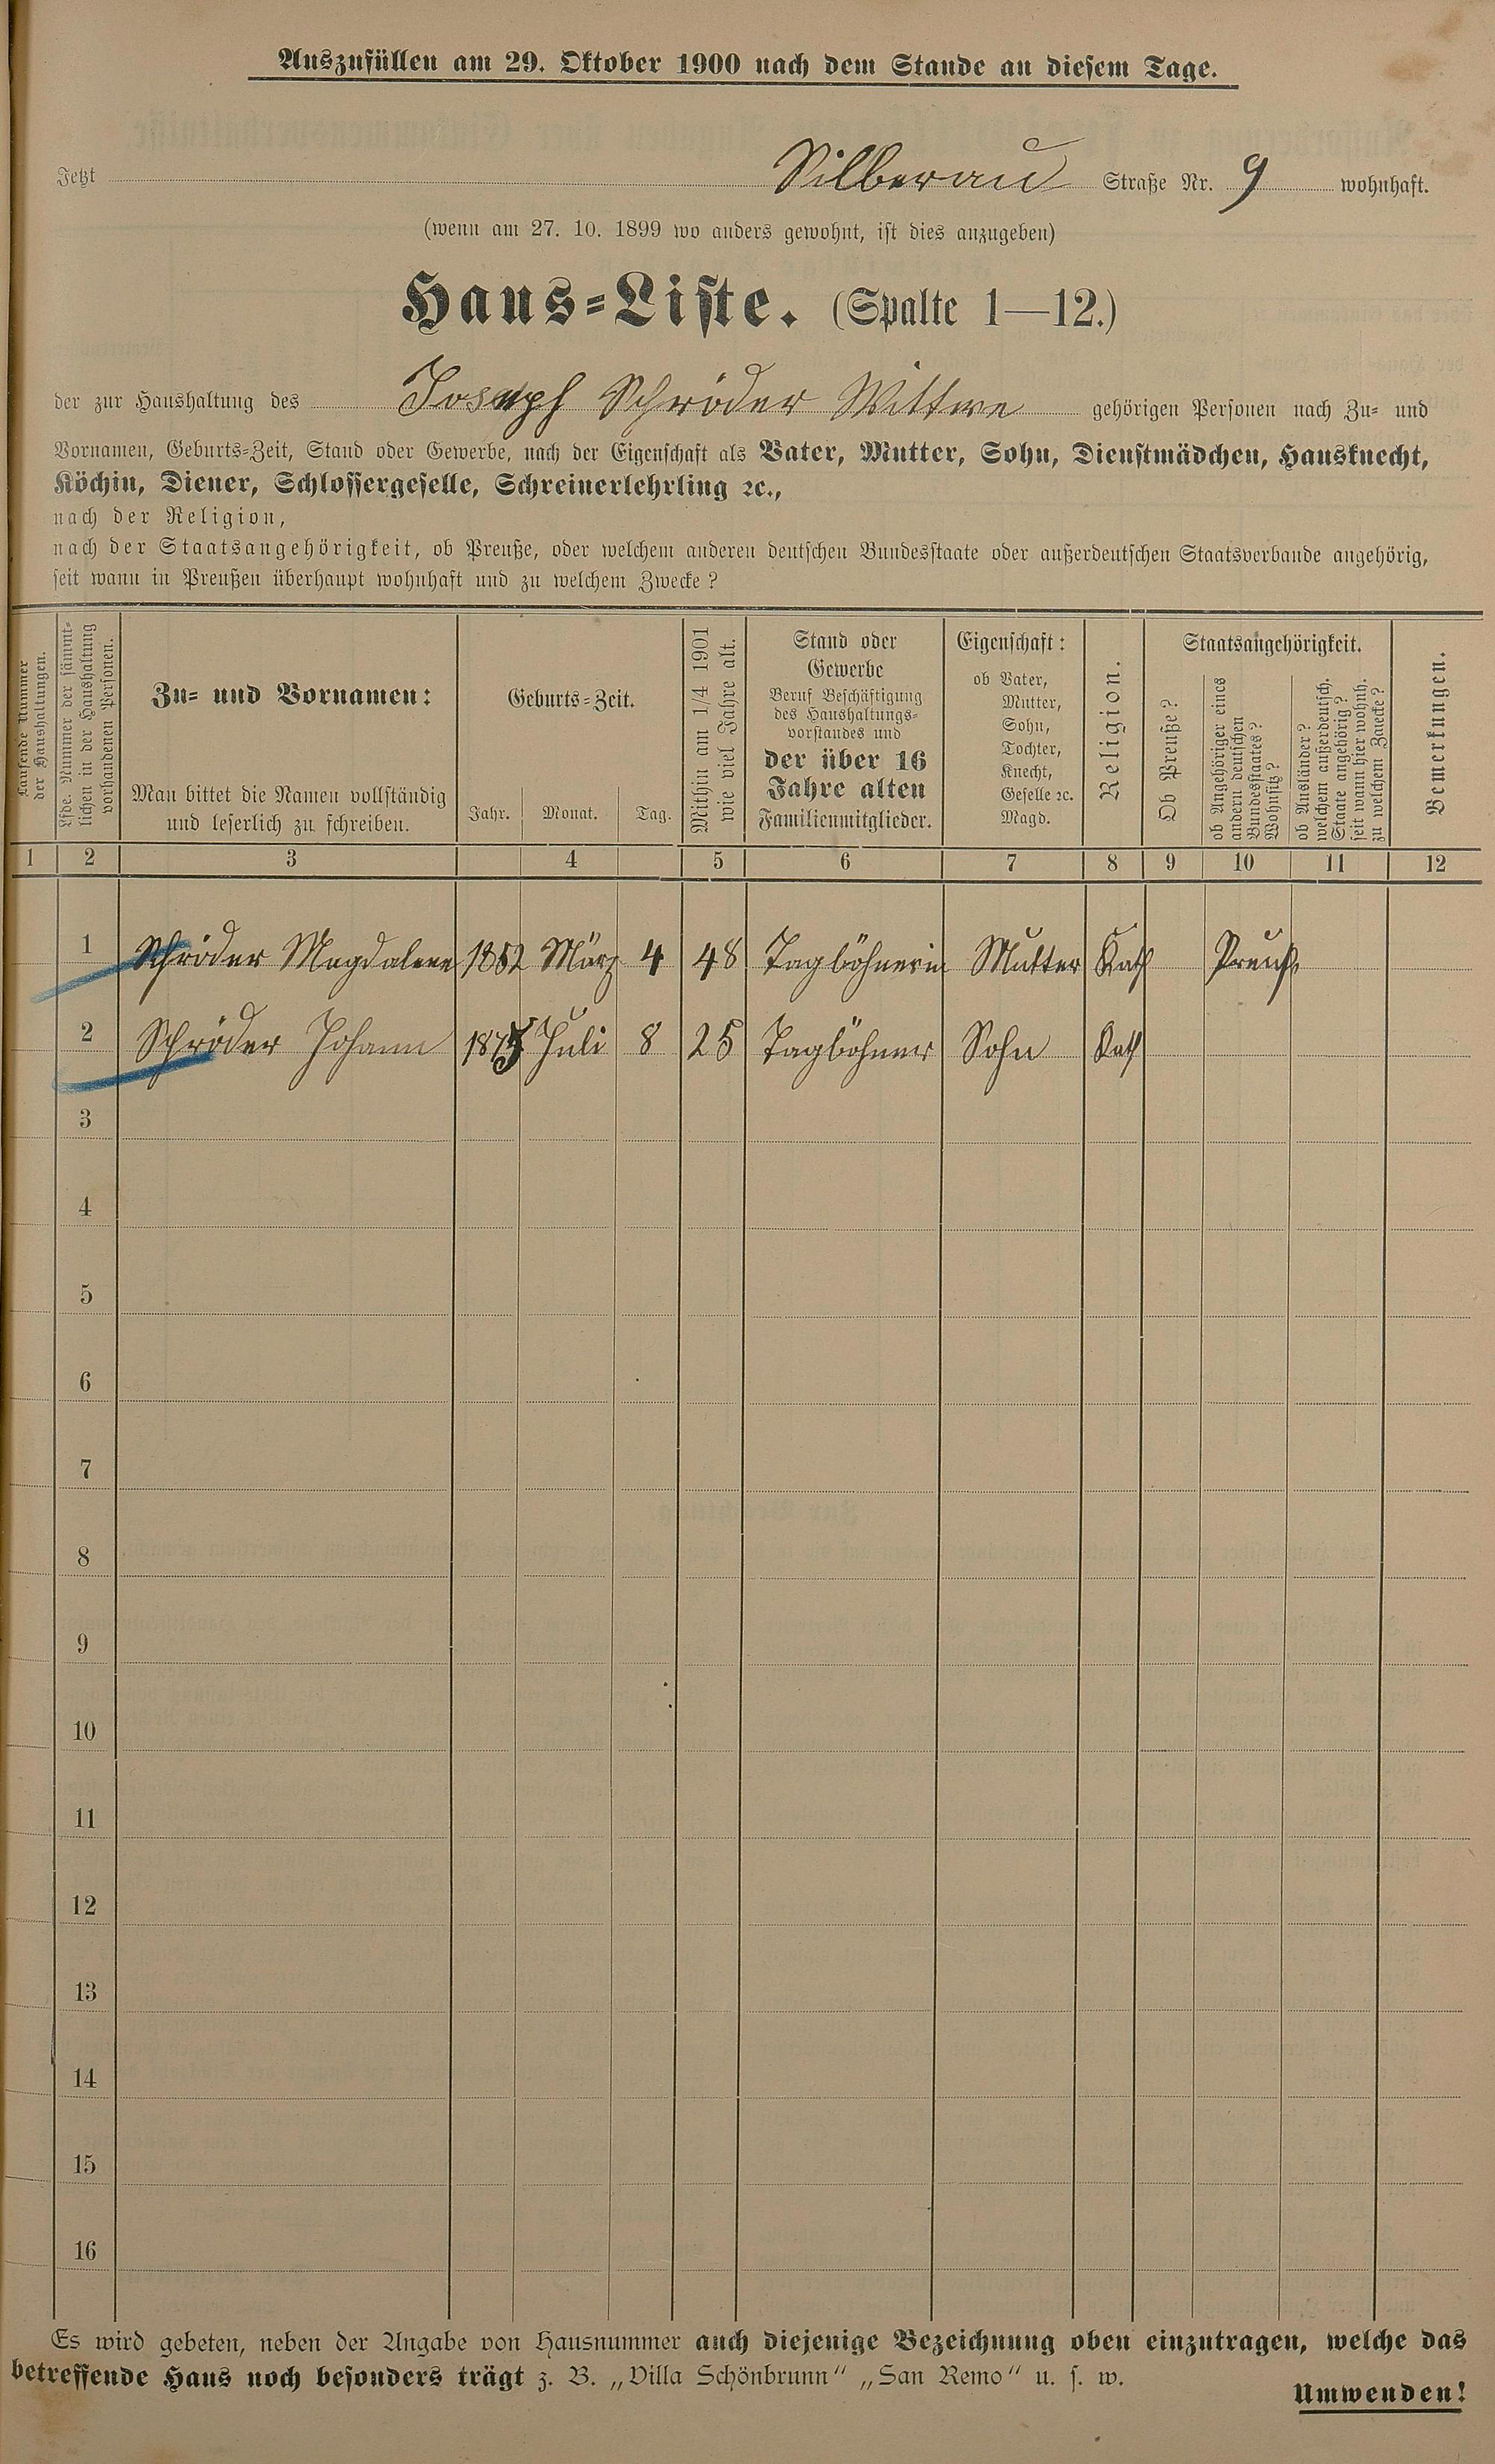 Auszufüllen am 29. Oktober 1900 nach dem Stande an diesem Tage.
Jetzt Silberau Straße Nr. 9 wohnhaft.
(wenn am 27. 10. 1899 wo anders gewohnt, ist dies anzugeben)
Haus-Liste. (Spalte 1—12.)
der zur Haushaltung des Joseph Schröder Wittwe gehörigen Personen nach Zu- und
Vornamen, Geburts-Zeit, Stand oder Gewerbe, nach der Eigenschaft als Vater, Mutter, Sohn, Dienstmädchen, Hausknecht,
Köchin, Diener, Schlossergeselle, Schreinerlehrling ꝛc.,
nach der Religion,
nach der Staatsangehörigkeit, ob Preuße, oder welchem anderen deutschen Bundesstaate oder außerdeutschen Staatsverbande angehörig,
seit wann in Preußen überhaupt wohnhaft und zu welchem Zwecke?
Laufende Nummer
der Haushaltungen.
Lfde. Nummer der sämmt-
lichen in der Haushaltung
vorhandenen Personen.
Zu- und Vornamen:
Man bittet die Namen vollständig
und leserlich zu schreiben.
Geburts-Zeit.
Jahr. Monat. Tag.
Mithin am 1/4 1901
wie viel Jahre alt.
Stand oder
Gewerbe
Beruf Beschäftigung
des Haushaltungs-
vorstandes und
der über 16
Jahre alten
Familienmitglieder.
Eigenschaft:
ob Vater,
Mutter,
Sohn,
Tochter,
Knecht,
Geselle ꝛc.
Magd.
Religion.
Staatsangehörigkeit.
Ob Preuße?
ob Angehöriger eines
andern deutschen
Bundesstaates?
Wohnsitz?
ob Ausländer?
welchem außerdeutsch.
Staate angehörig?
seit wann hier wohnh.
zu welchem Zwecke?
Bemerkungen.
1 2 3 4 5 6 7 8 9 10 11 12
1 Schröder Magdalene 1852 März 4 48 Taglöhnerin Mutter Kath Preuß
2 Schröder Johann 1875 Juli 8 25 Taglöhner Sohn Kath
3
4
5
6
7
8
9
10
11
12
13
14
15
16
Es wird gebeten, neben der Angabe von Hausnummer auch diejenige Bezeichnung oben einzutragen, welche das
betreffende Haus noch besonders trägt z. B. „Villa Schönbrunn“ „San Remo“ u. s. w.
Umwenden!